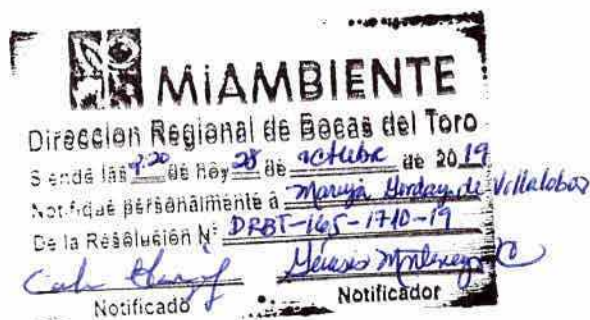 MiAMBIENTE
Dirección Regional de Bocas del Toro
Siendo las 9:20 de hoy 28 de octubre de 2019
Notifique personalmente a Maruja Gorday de Villalobos
De la Resolución N° DRBT-165-1710-19
Notificado Notificador